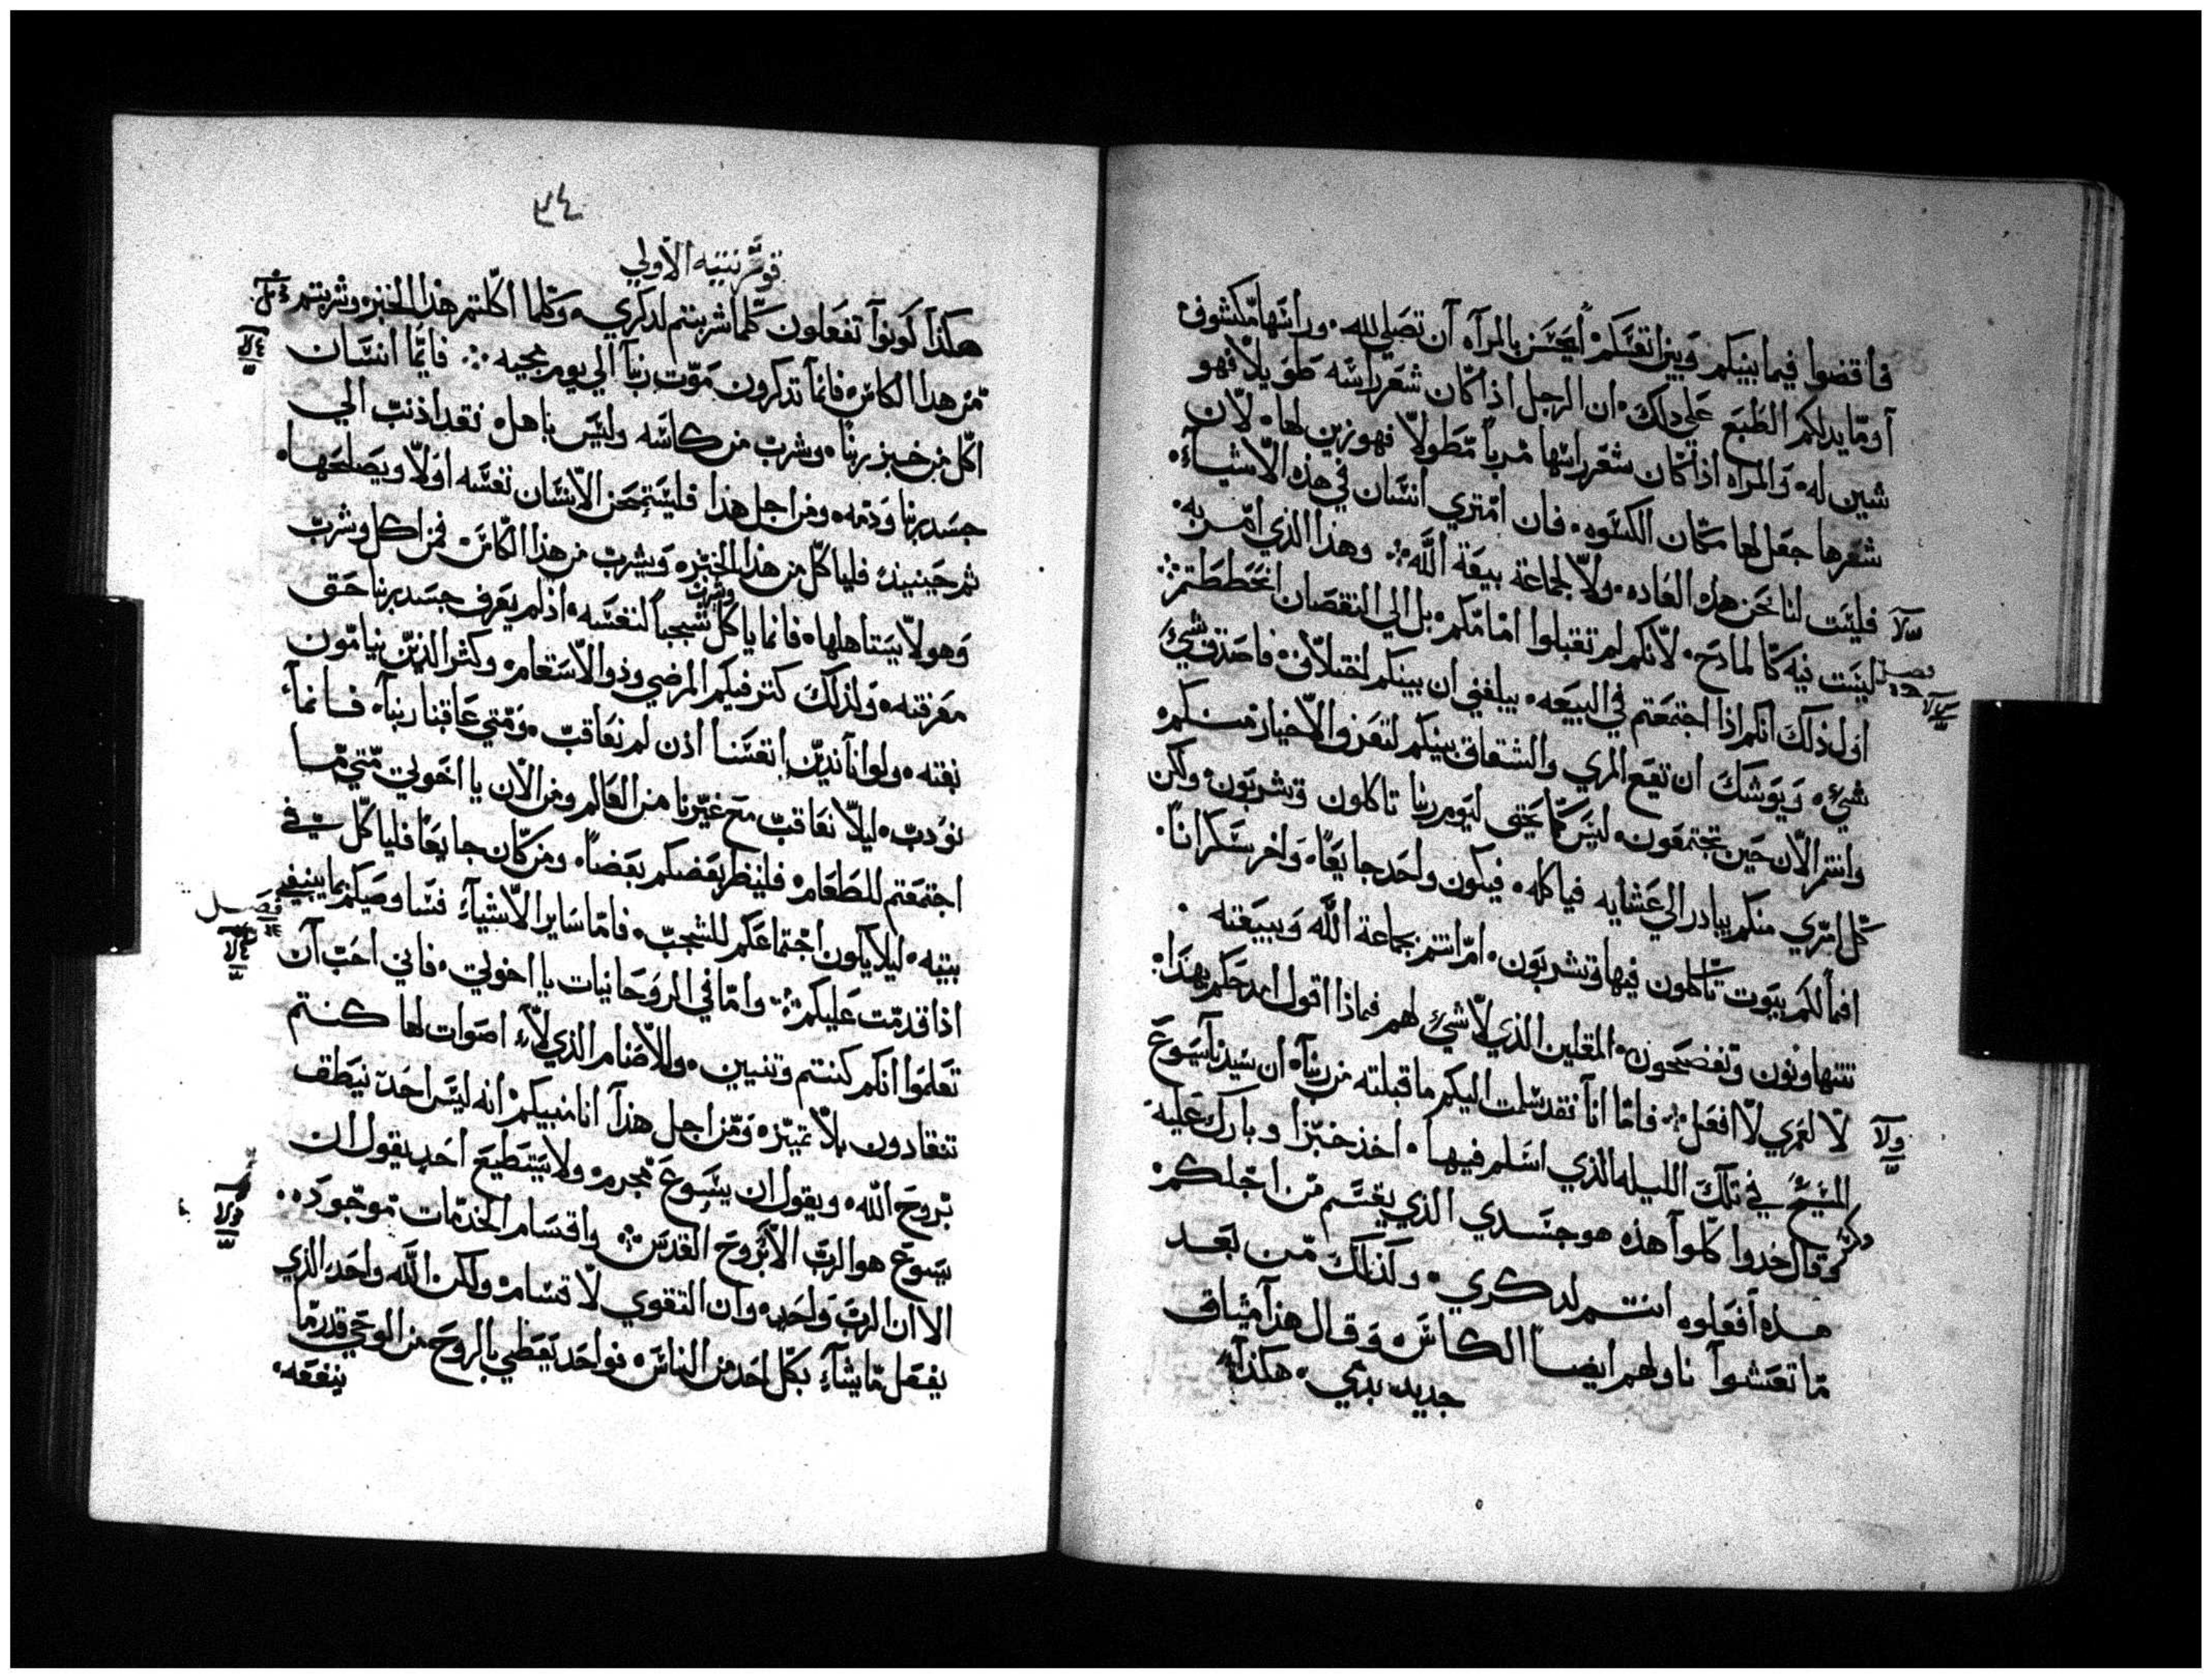 فاقضوا فيما بينكم وبين انفسكم ايحسن بالمراه ان تصلي لله وراسها مكشوف
او ما يدلكم الطبع علي دلك ان الرجل اذا كان شعر راسه طويلا فهو
شين له والمراه اذا كان شعر راسها مربا مطولا فهو زين لها لان
شعرها جعل لها مكان الكسوه فان امتري انسان في هذه الاشياء
فليست لنا نحن هذه العاده ولا لجماعة بيعة الله وهذا الذي امر به
ليست فيه كالمادح لانكم لم تقبلوا امامكم بل الي النقصان انحططتم
فصل
اول ذلك انكم اذا اجتمعتم في البيعه يبلغني ان بينكم اختلاف فاصدق شيء
شيء ويوشك ان تقع المري والشقاق بينكم لتعرف الاخيار منكم
وانتم الان حين تجتمعون ليس كما يحق ليوم ربنا تاكلون وتشربون ولكن
كل امري منكم يبادر الي عشايه فياكله فيكون واحد جايعا واخر سكرانا
افما لكم بيوت تاكلون فيها وتشربون ام انتم بجماعة الله وبيعته
تتهاونون وتفضحون المقلين الذي لا شيء لهم فماذا اقول امدحكم بهذا
لا لعمري لا افعل فاما انا فقد سلمت اليكم ما قبلته من ربنا ان سيدنا يسوع
المسيح في تلك الليله الذي اسلم فيها اخذ خبزا وبارك عليه
وكسر
وقال خدوا كلوا هذه هو جسدي الذي يقسم من اجلكم
هده افعلوه انتم لدكري وكذلك من بعد
ما تعشوا ناولهم ايضا الكاس وقال هذا ميثاق
جديد بدمي هكذا
٣٤
قورنتيه الاولي
هكذا كونوا تفعلون كلما شربتم لدكري وكلما اكلتم هذا الخبز وشربتم
من هدا الكاس فانما تدكرون موت ربنا الي يوم مجيه فايما انسان
اكل من خبز ربنا وشرب من كاسه وليس باهل فقد اذنب الي
جسد ربنا ودمه ومن اجل هذا فليمتحن الانسان نفسه اولا ويصلحها
ثم حينيذ فلياكل من هذا الخبز ويشرب من هذا الكاس فمن اكل وشرب
وهو لا يستاهلها فانما ياكل وشرب شجبا لنفسه اذ لم يعرف جسد ربنا حق
معرفته ولذلك كثر فيكم المرضي وذو الاسقام وكثر الذين ينامون
بغته ولو انا ندين انفسنا اذن لم نعاقب ومتي عاقبنا ربنا فانما
نودب ليلا نعاقب مع غيرنا من العالم ومن الان يا اخوتي متي ما
اجتمعتم للطعام فلينظر بعضكم بعضا ومن كان جايعا فلياكل في
بيته ليلا يكون اجتماعكم للشجب فاما ساير الاشياء فساوصيكم بما ينبغي
فصل
اذا قدمت عليكم واما في الروحانيات يا اخوتي فاني احب ان
تعلموا انكم كنتم وتنيين وللاصنام الذي لا اصوات لها كنتم
تنقادون بلا تمييز ومن اجل هذا انا منبيكم انه ليس احد ينطق
بروح الله ويقول ان يسوع مجرم ولا يستطيع احد يقول ان
يسوع هو الرب الا بروح القدس واقسام الخدمات موجوده
الا ان الرب واحد وان القوي لاقسام ولكن الله واحد الذي
يفعل ما يشاء بكل احد من الناس فواحد يعطي بالروح من الوحي قدر ما
ينفعه